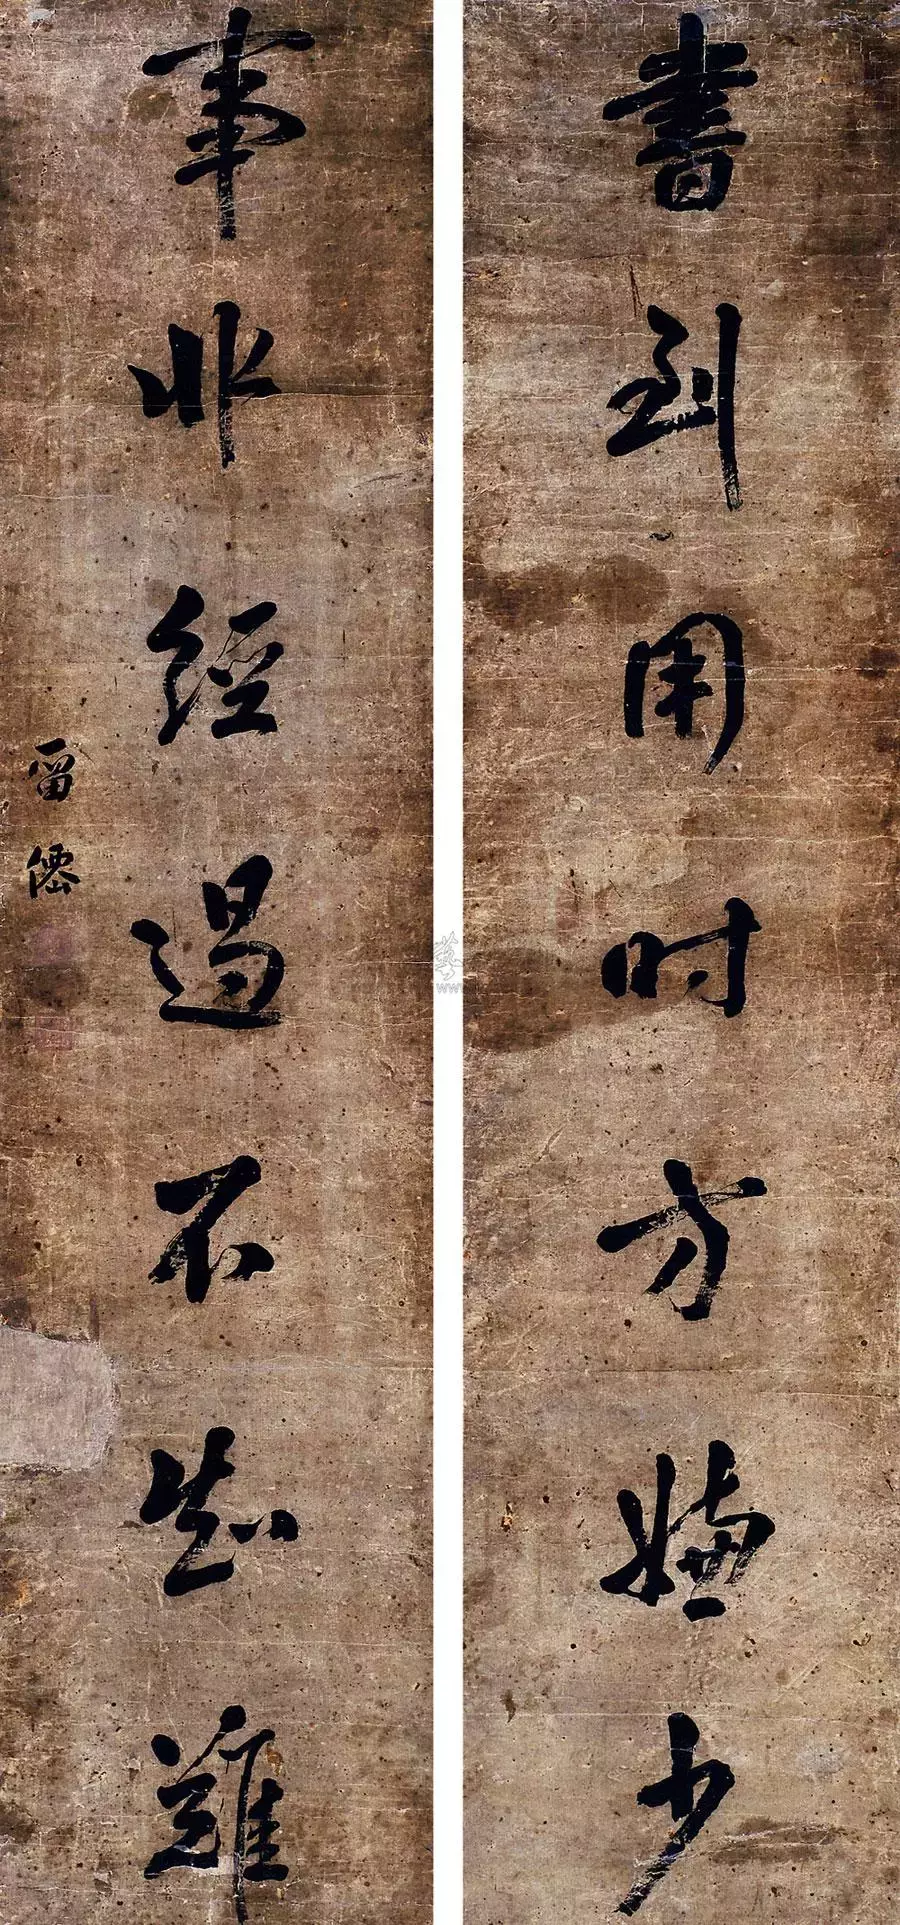 書到用时方嫌少
事非經過不知難
留僊
藝
www